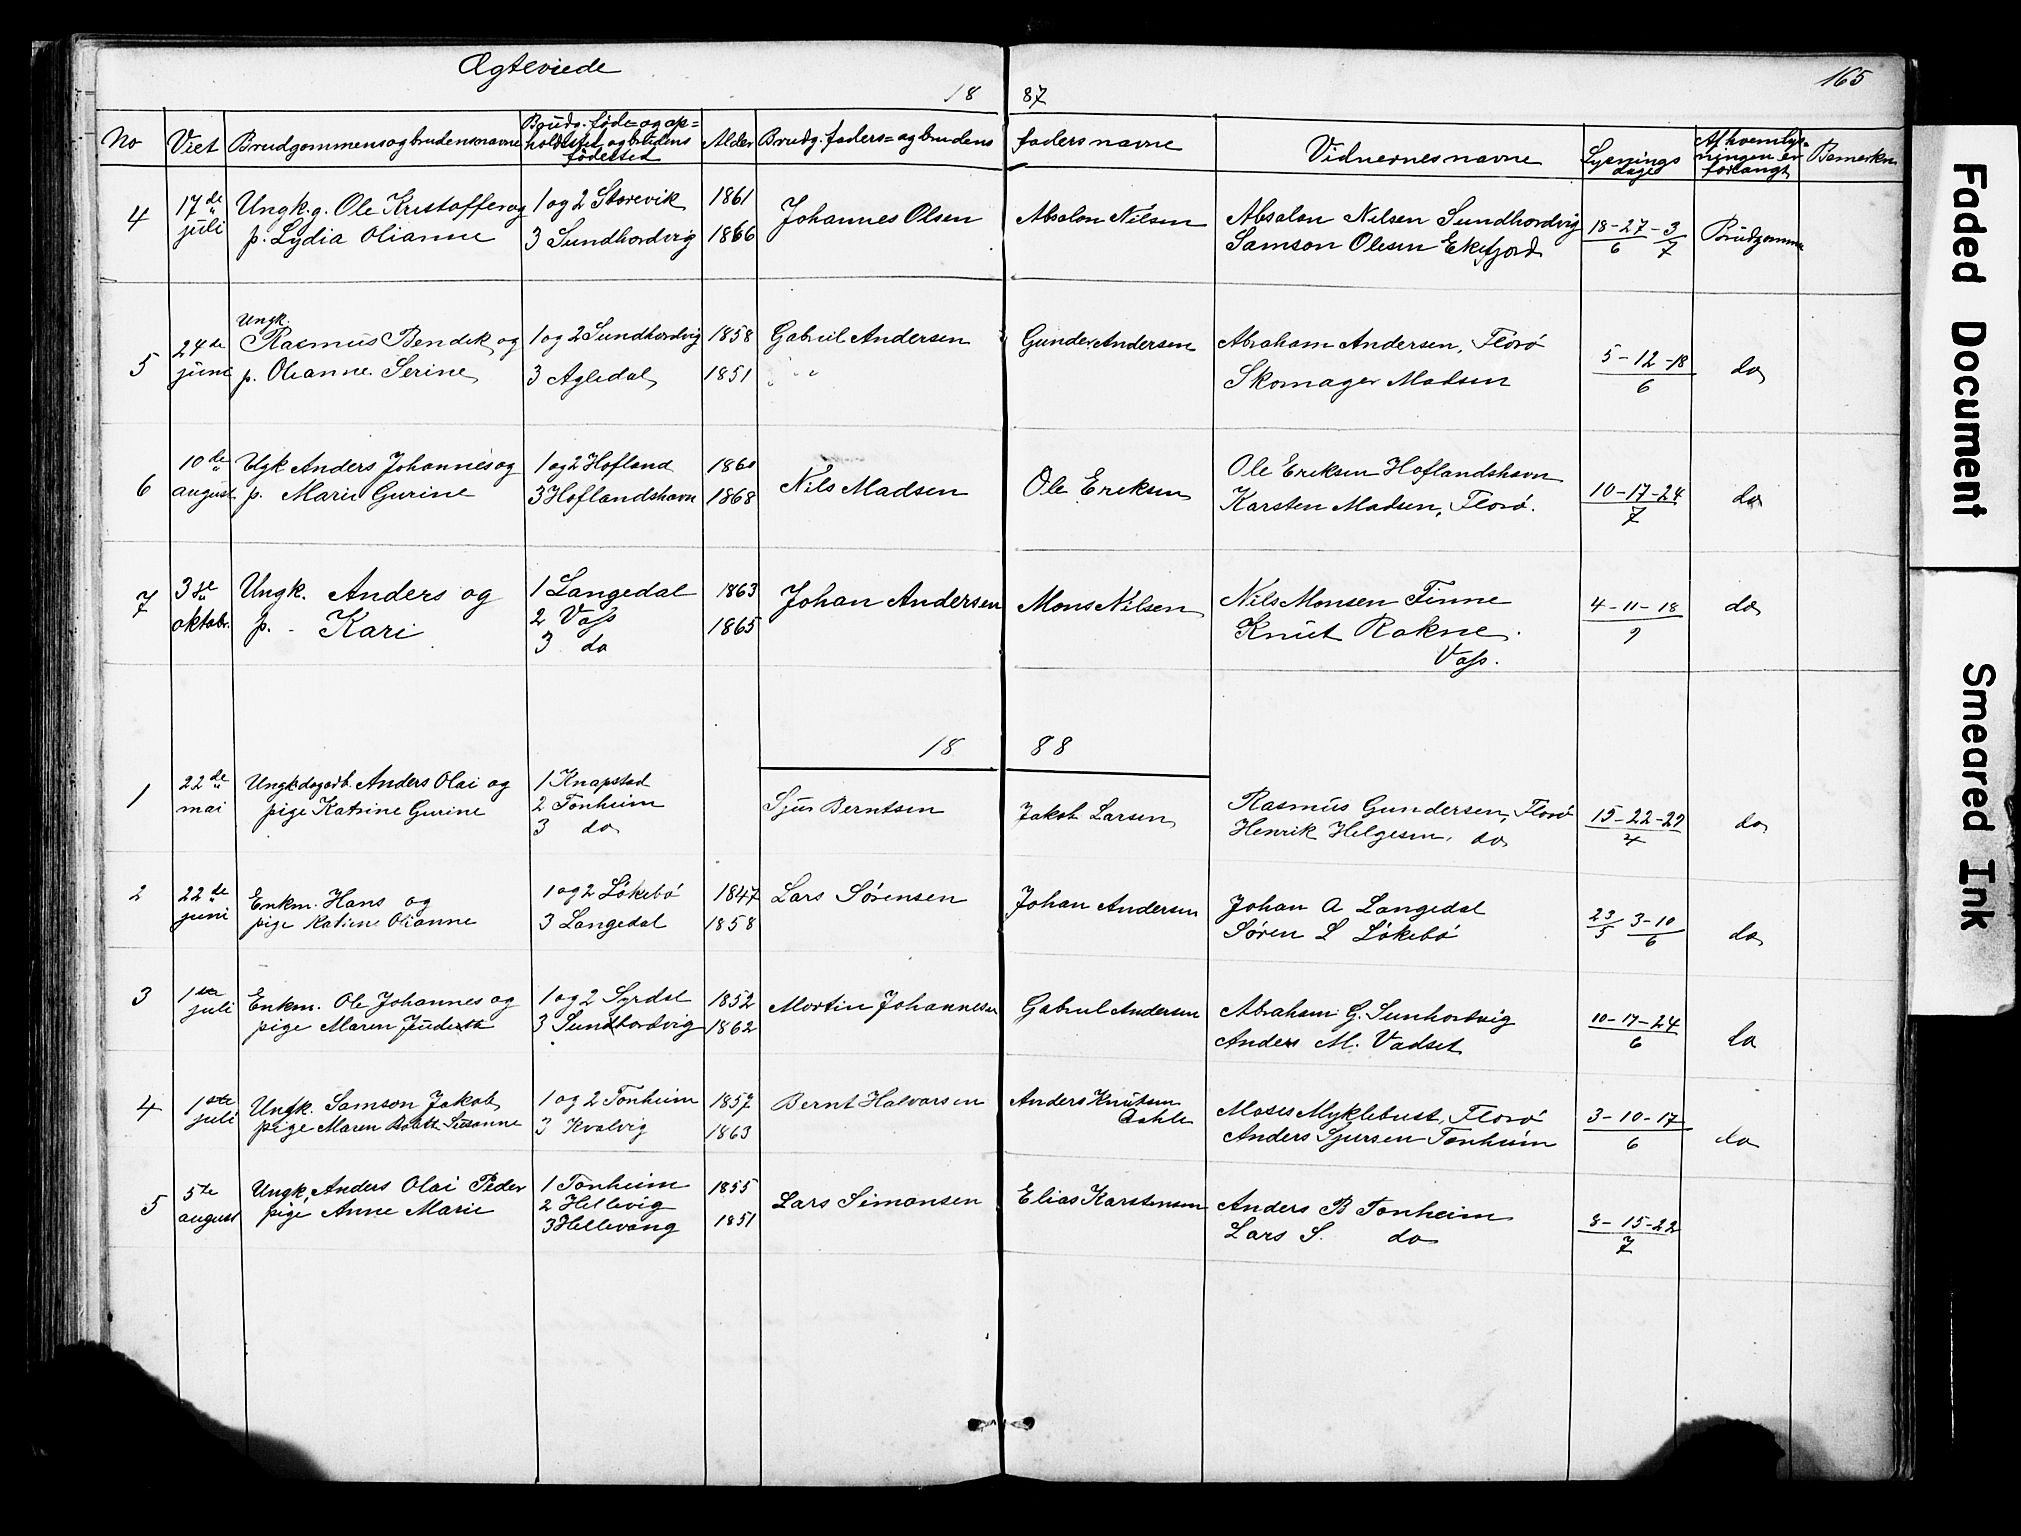 Ægteviede
165
18 87
No
Viet
Brudgommens og brudens navne
Brudg. føde- og op-
holdssted, og brudens
fødested
Alder
Brudg. faders- og brudens
faders navne
Vidnernes navne
Lysnings
dage
Af hvem lys-
ningen er
forlangt
Bemerkn
4
17de
juli
Ungk. g. Ole Kristoffer og
p. Lydia Olianne
1 og 2 Storevik
3 Sundhordvig
1861
1866
Johannes Olsen
Absolon Nilsen
Absolon Nilsen Sundhordvig
Samson Olesen Ekefjord
18-27-3
6 7
Brudgomme
5
24de
juni
Ungk.
Rasmus Bendik og
p. Olianne Serine
1 og 2 Sundhordvig
3 Agledal
1858
1851
Gabriel Andersen
Gunder Andersen
Abraham Andersen, Florø
Skomager Madsen
5-12-18
6
do
6
10de
august
Ugk Anders Johannes og
p. Marie Gurine
1 og 2 Hofland
3 Hoflandshavn
1860
1868
Nils Madsen
Ole Eriksen
Ole Eriksen Hoflandshavn
Karsten Madsen, Florø.
10-17-24
7
do
7
3de
oktobr.
Ungk. Anders og
p. - Kari
1 Langedal
2 Voss
3 do
1863
1865
Johan Andersen
Mons Nilsen
Nils Monsen Finne
Knut Rokne
Voss.
4-11-18
9
do
18 88
1
22de
mai
Ungk dagarb. Anders Olai og
pige Katrine Gurine
1 Knapstad
2 Tonheim
3 do
Sjur Berntsen
Jakob Larsen
Rasmus Gundersen, Florø
Henrik Helgesen, do
15-22-29
4
do
2
22de
juni
Enkm. Hans og
pige Katrine Olianne
1 og 2 Løkebø
3 Langedal
1847
1858
Lars Sørensen
Johan Andersen
Johan A Langedal
Søren L Løkebø
23 3-10
5 6
do
3
1ste
juli
Enkm. Ole Johannes og
pige Maren Judith
1 og 2 Syrdal
3 Sundhordvig
1852
1862
Mortin Johannesen
Gabriel Andersen
Abraham G. Sunhordvig
Anders M. Vadset
10-17-24
6
do
4
1ste
juli
Ungk. Samson Jakob
pige Maren Susanne
1 og 2 Tonheim
3 Kvalvig
1857
1863
Bernt Halvorsen
Anders Knutsen
Dahle
Moses Myklebust, Florø
Anders Sjursen Tonheim
3-10-17
6
do
5
5te
august
Ungk. Anders Olai Peder
pige Anne Marie
1 Tonheim
2 Hellevig
3 Hellevang
1855
1851
Lars Simonsen
Elias Karstensen
Anders B Tonheim
Lars S. do
8-15-22
7
Faded Document
Smeared Ink